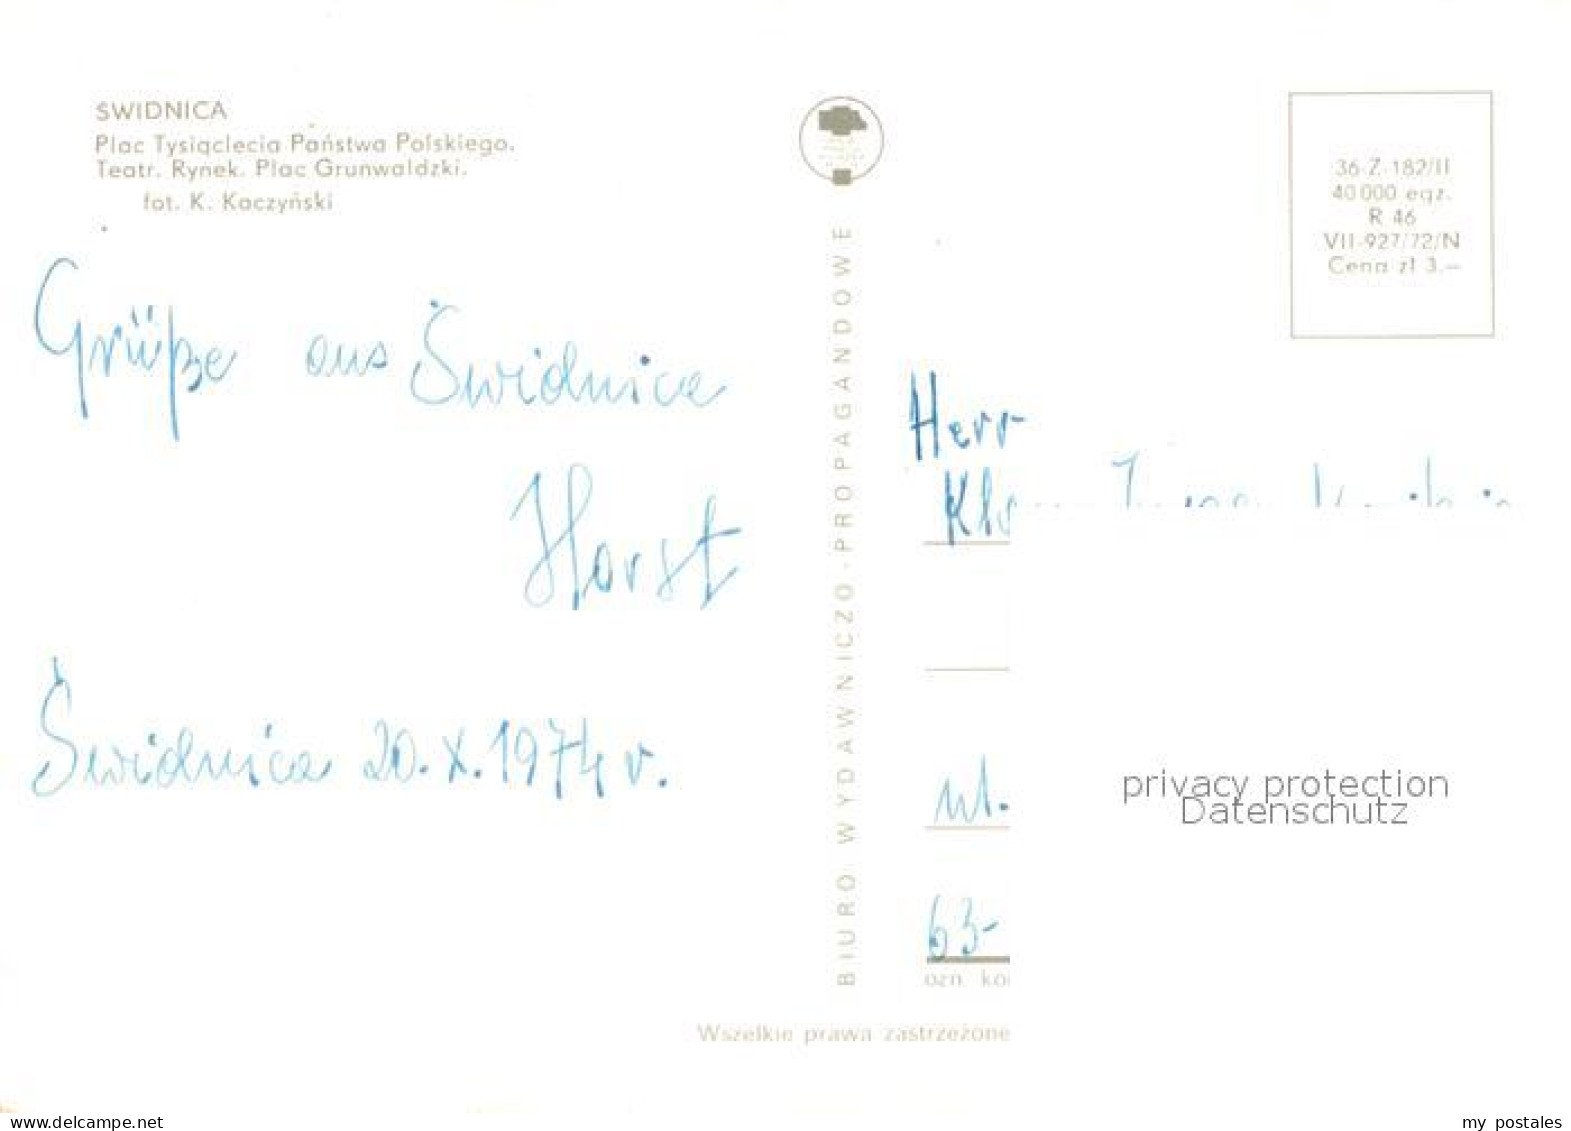 ŚWIDNICA
Plac Tysiąclecia Państwa Polskiego.
Teatr. Rynek. Plac Grunwaldzki.
fot. K. Kaczyński
Grüße aus Świdnica
Horst
Świdnica 20.X.1974 r.
BIURO WYDAWNICZO-PROPAGANDOWE
36-Z-182/II
40 000 egz.
R 46
VII-927/72/N
Cena zł 3.—
Herr
ul.
63-
ozn. ko
Wszelkie prawa zastrzeżone
privacy protection
Datenschutz
www.delcampe.net
my postales